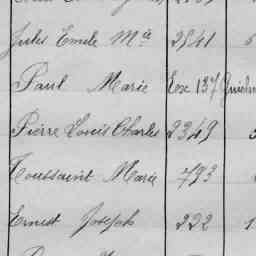 Jules Emile Mie 2541
Paul Marie Exe 137
Pierre Louis Charles 2349
Toussaint Marie 793
Ernest Joseph 222 1